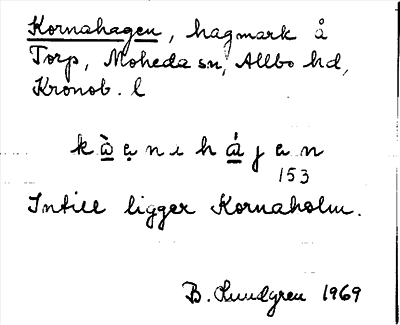 Kornahagen, hagmark å
Torp, Moheda sn, Allbo hd,
Kronob. l
kàạnıháȷen
153
Intill ligger Kornaholm.
B. Lundgren 1969